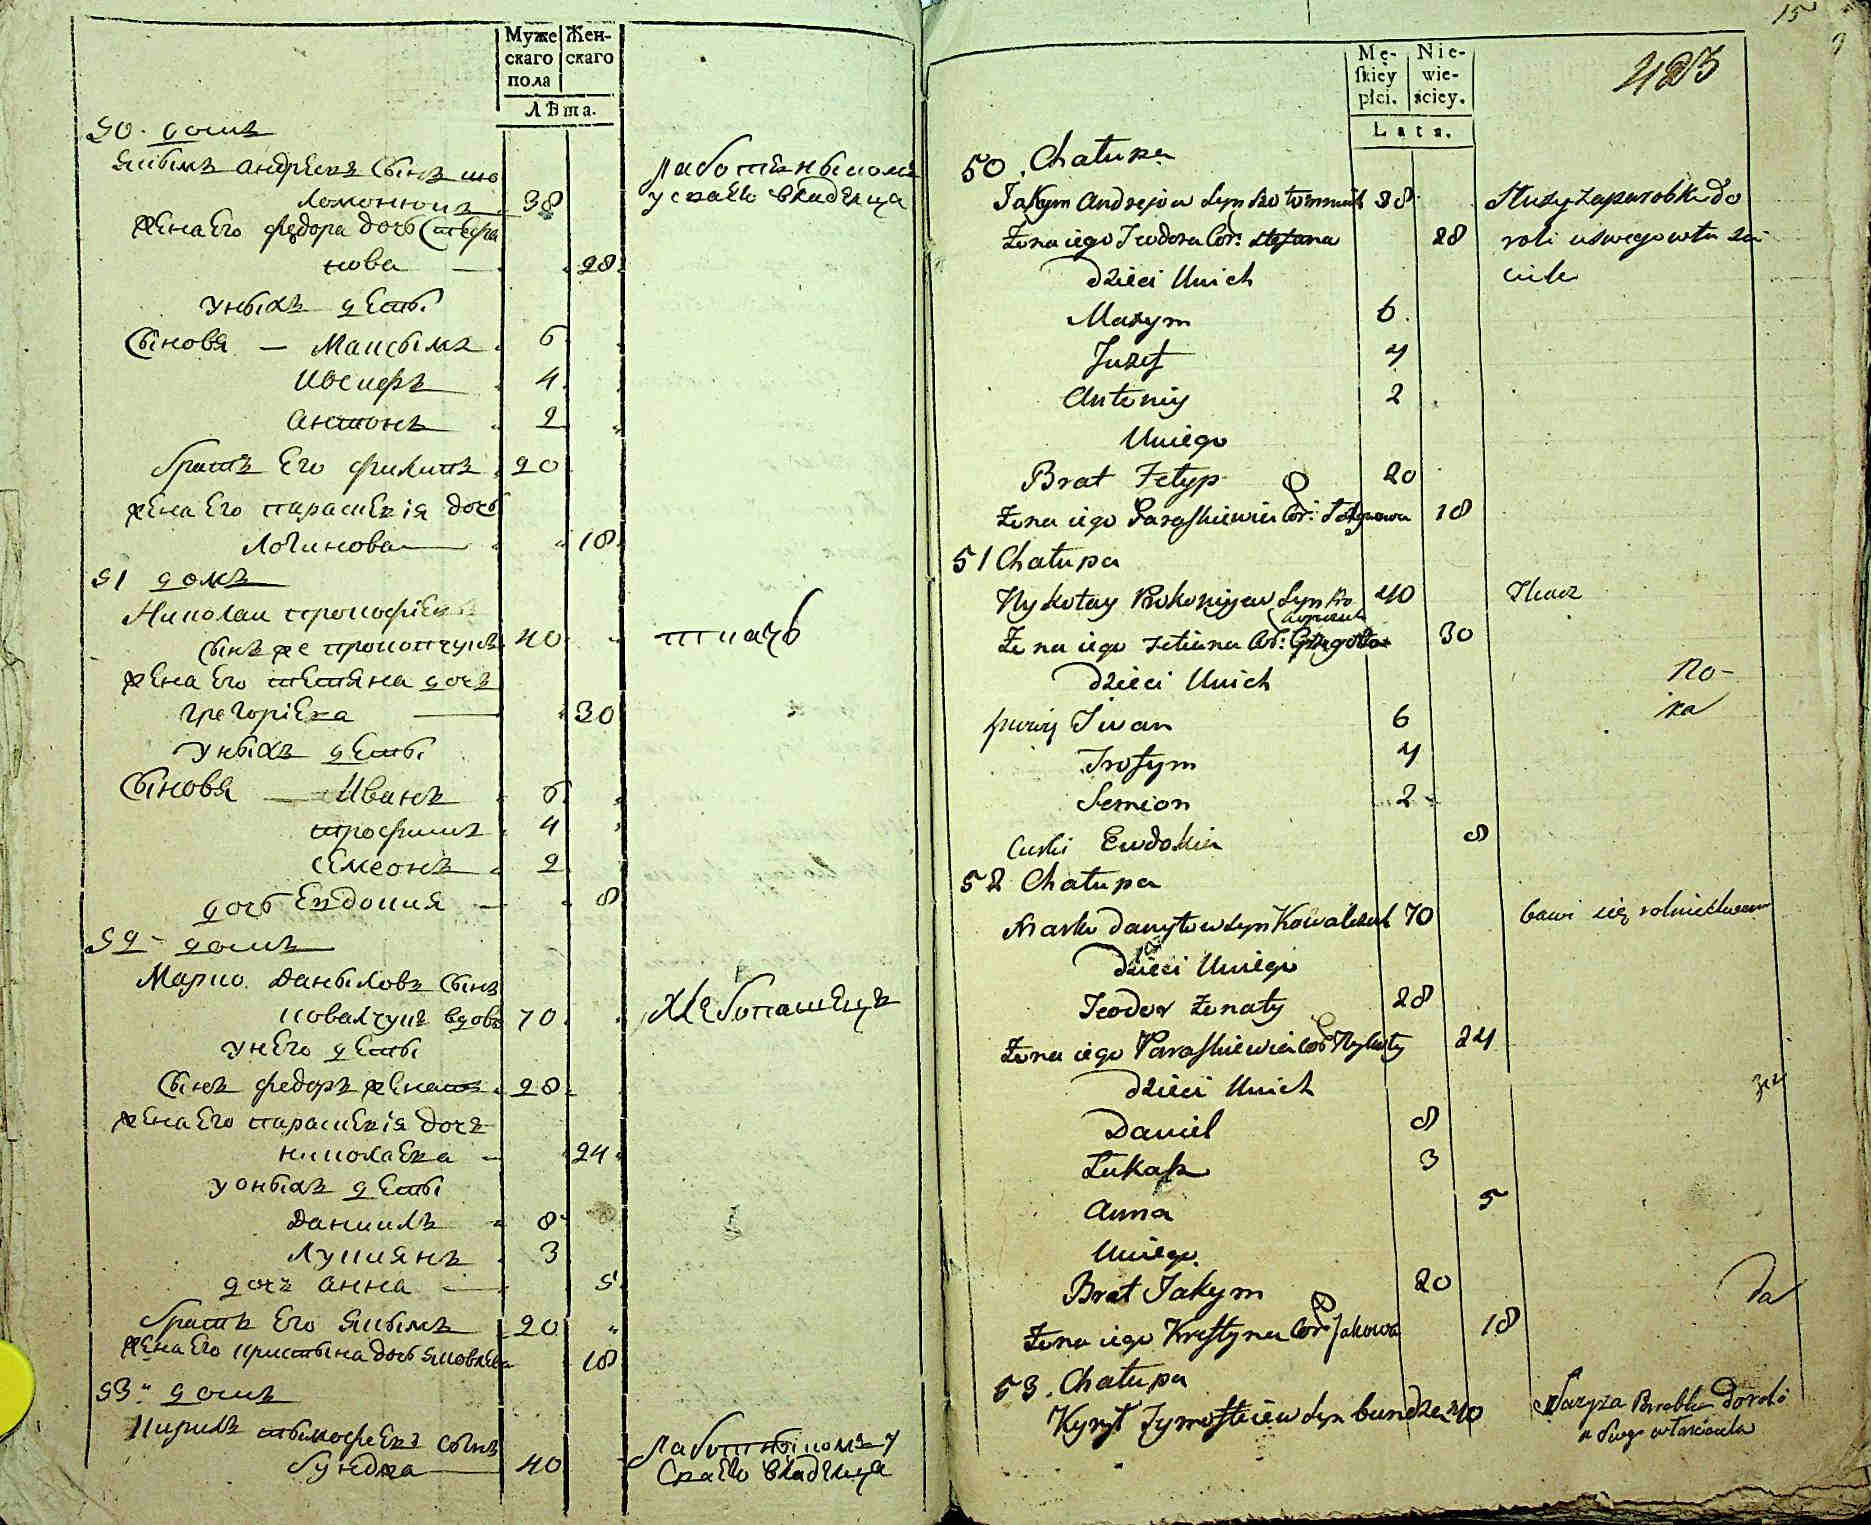 Муже
скаго
пола
Жен-
скаго
Лѣта.
50. домъ
Якымъ андреевъ Сынъ шо
ломонюкъ 38
Работникомъ
у своего владелца
жена Его федора дочь Стефа
нова — 28
уныхъ дети
Сыновя — Максымъ 6
Иосифъ 4
антонъ 2
братъ Его филипъ 20
жена Его параскевія дочь
Логинова — 18
51 домъ
Николаи прокофіевъ
Сынъ же прокопчукъ 40
ткачь
жена Его тетяна дочъ
грегоріева — 30
уныхъ дети
Сыновя — Иванъ 6
трофимъ 4
Симеонъ 2
дочь Евдокия — 8
52 - домъ
Марко даныловъ Сынъ
ковалчукъ вдовъ 70
Хлебопашецъ
унего дети
Сынъ федоръ женатъ 28
жена Его параскевія дочъ
николаева — 24
уоныхъ дети
даниилъ 8
Лукиянъ 3
дочъ анна — 5
братъ Его Якымъ 20
жена Его кристына дочь яковлева 18
53 домъ
Кирилъ тымофеевъ Сынъ
бунджа 40
Работникомъ у
Своего владелца
15
9
423
Mę-
skiey
płci.
Nie-
wie-
ściey.
Lata.
50. Chałupa
Jakym Andrejow Syn Szołomniuk 38
Służy za parobka do
Żona iego Teodora Cór: Stefana 28
roli u swego wła ści
ciela
Dzieci Unich
Maxym 6.
Juzef 4
Antoniy 2
Uniego
Brat Felyp 20
Żona iego Paraskiewia Cór: 18
51 Chałupa
Nykołay Prokopijew Syn Pro 40
kopczuk
Tkacz
Żona iego Tetiana Cór: 30
Dzieci Unich
Iwan 6
Trofym 4
Semion 2
Curki Ewdokia 8
52 Chałupa
Marko Danyłow Syn Kowalczuk 70
bawi się rolnictwem
Dzieci Uniego
Teodor żonaty 28
Żona iego Paraskiewia Cór Nykoły 24
Dzieci Unich
Daniel 8
Łukasz 3
Anna 5
Uniego
Brat Jakym 20
Żona iego Krystyna Cór Jakowa 18
53. Chałupa
Kyrył Tymofteiew Syn bundza 40